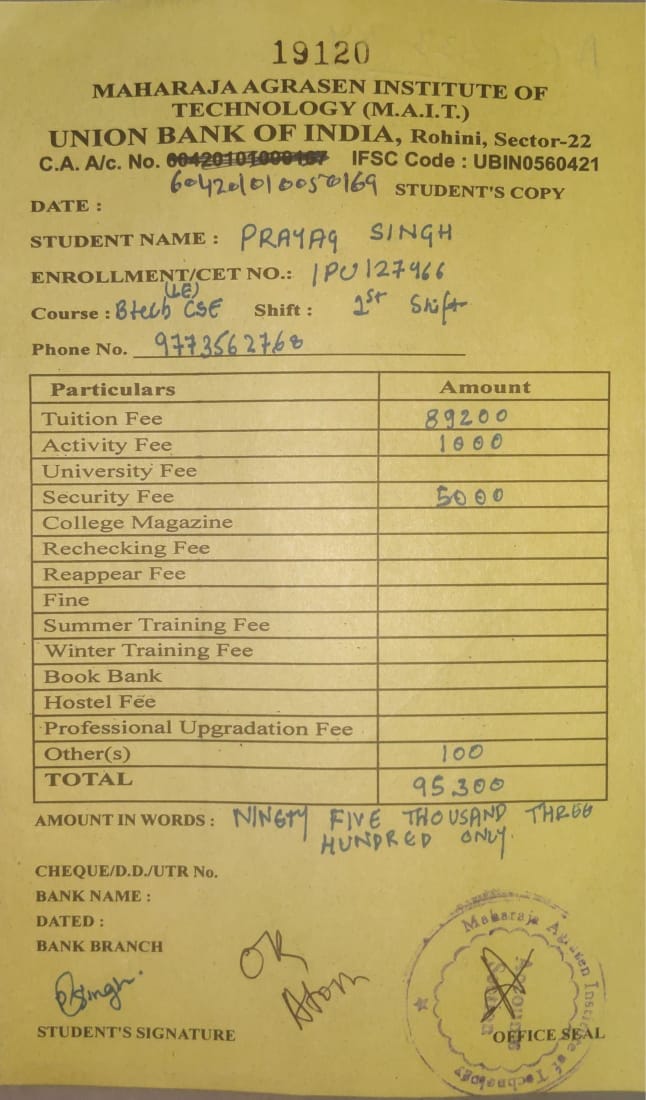 19120
MAHARAJA AGRASEN INSTITUTE OF
TECHNOLOGY (M.A.I.T.)
UNION BANK OF INDIA, Rohini, Sector-22
C.A. A/c. No. IFSC Code : UBIN0560421
604201010050169 STUDENT'S COPY
DATE :
STUDENT NAME : PRAYAG SINGH
ENROLLMENT/CET NO.: IPU127466
(LE)
Course : Btech CSE Shift : 1st Shift
Phone No. 9773562768
Particulars Amount
Tuition Fee 89200
Activity Fee 1000
University Fee
Security Fee 5000
College Magazine
Rechecking Fee
Reappear Fee
Fine
Summer Training Fee
Winter Training Fee
Book Bank
Hostel Fee
Professional Upgradation Fee
Other(s) 100
TOTAL 95300
AMOUNT IN WORDS : NINGTY FIVE THOUSAND THREE
HUNDRED ONLY.
CHEQUE/D.D./UTR No.
BANK NAME :
DATED :
BANK BRANCH
OK
Singh.
STUDENT'S SIGNATURE
Maharaja Agrasen Institute of Technology
Accounts
Section
OFFICE SEAL